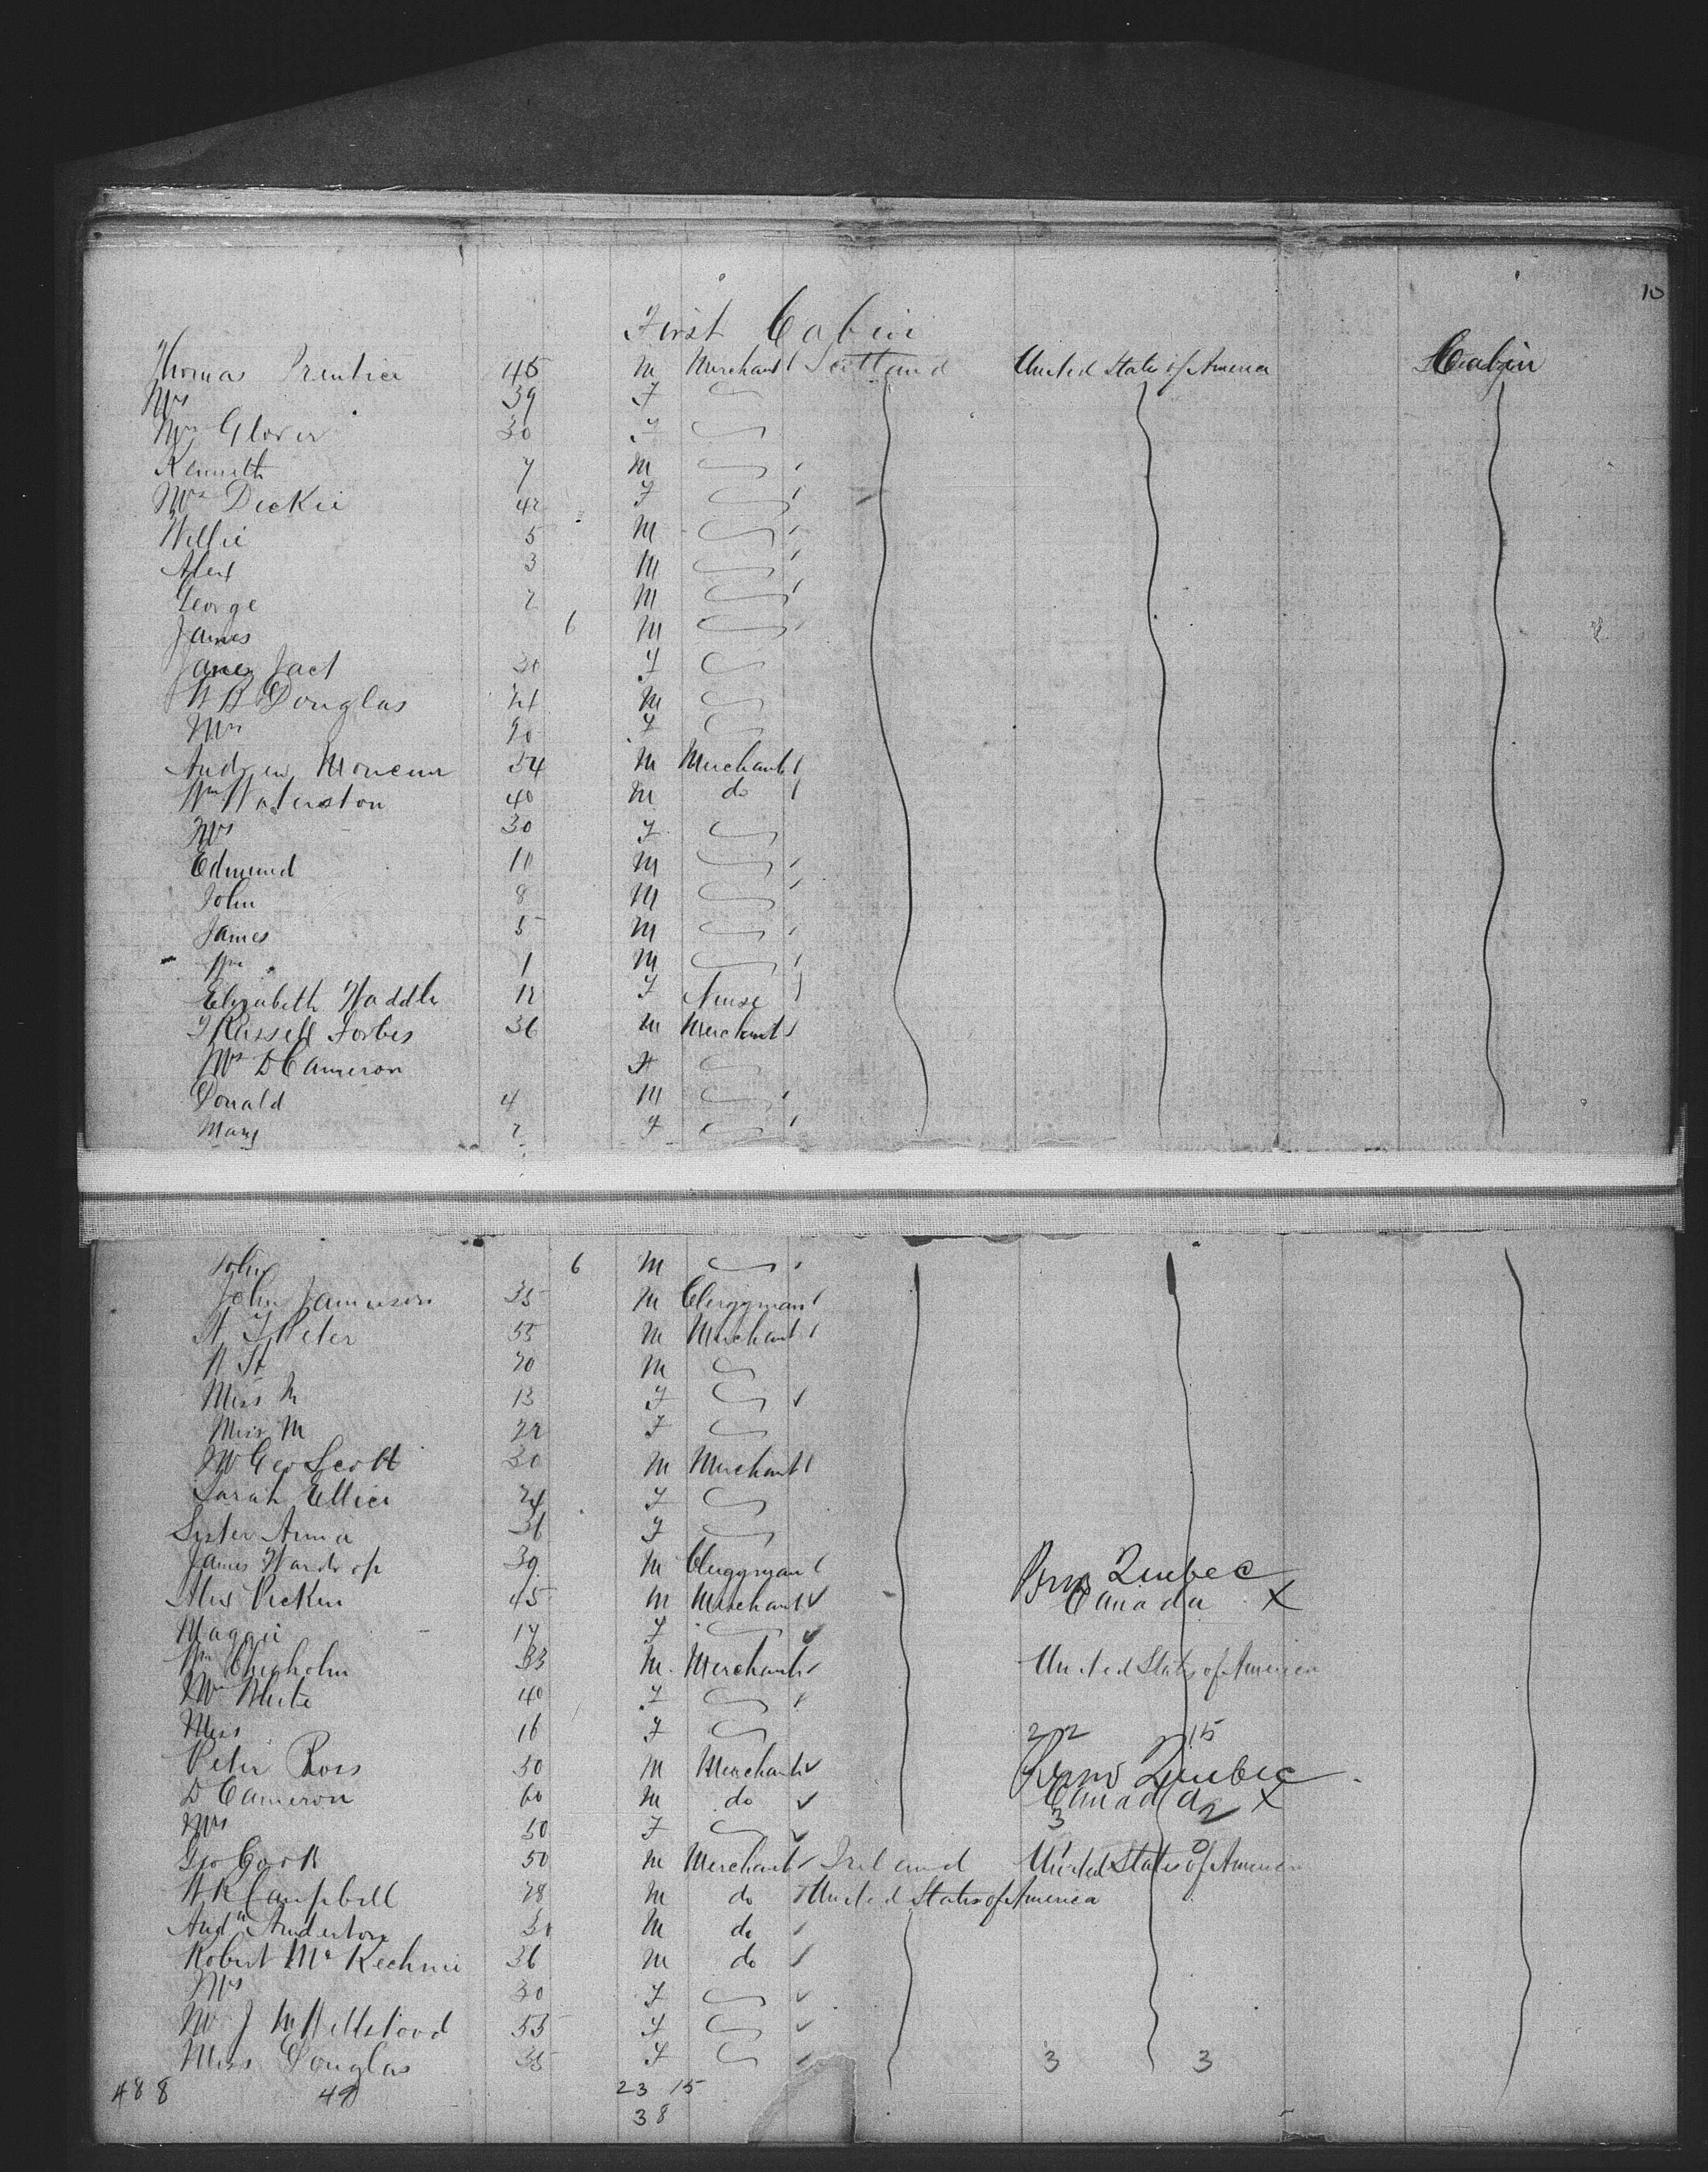 10
First Cabin
Thomas Prentice 45 M Merchant Scotland United States of America Cabin
Mrs 39 F
Mrs Glover 30 F
Kenneth 7 M
Mrs Dickie 42 F
Willie 5 M
Alex 3 M
George 2 M
James 6 M
Jane Jack 30 F
W B Douglas 24 M
Mrs 20 F
Andrew Moncur 34 M Merchant
Wm Waterston 40 M do
Mrs 30 F
Edmund 10 M
John 8 M
James 5 M
Wm 1 M
Elizabeth Waddle 12 F Nurse
Russell Forbes 36 M Merchant
Mrs D Cameron F
Donald 4 M
Mary 2 F
John 6 M
John Jamieson 35 M Clergyman
Peter 55 M Merchant
20 M
Miss M 13 F
Miss M 22 F
Geo Scott 30 M Merchant
Sarah Ellice 24 F
Sister Anna 36 F
James Wardrop 39 M Clergyman
Quebec
Alex Picken 45 M Merchant Canada X
Maggie 17 F
Wm Chisholm 33 M Merchant United States of America
White 40 F
Miss 16 F
22 15
Peter Ross 50 M Merchant Quebec
D Cameron 60 M do Canada X
3 2
Mrs 50 F
Geo Cook 50 M Merchant Ireland United States of America
W R Campbell 28 M do United States of America
Andw Anderton 30 M do
Robert McKechnie 36 M do
Mrs 30 F
J M Wellstood 53 F
Miss Douglas 35 F 3 3
488 49 23 15
38